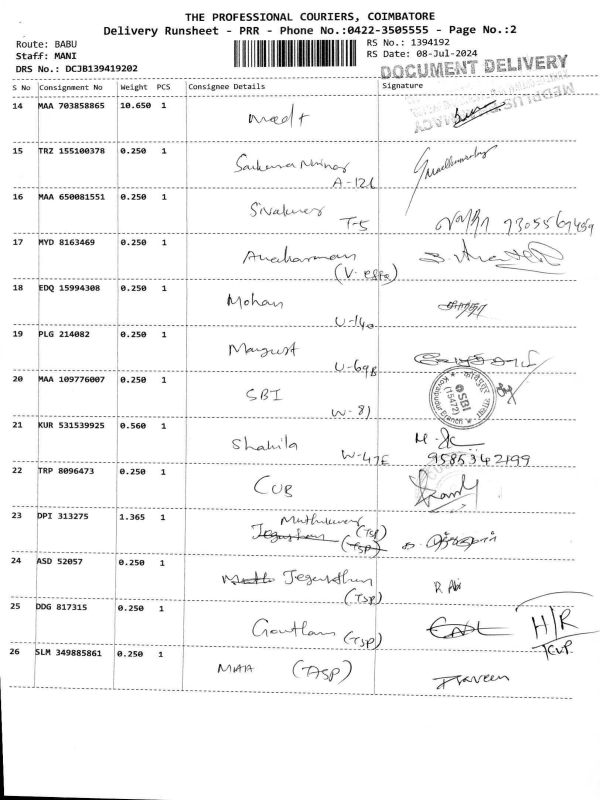 THE PROFESSIONAL COURIERS, COIMBATORE
Delivery Runsheet - PRR - Phone No.:0422-3505555 - Page No.:2
Route: BABU
RS No.: 1394192
Staff: MANI
RS Date: 08-Jul-2024
DRS No.: DCJB139419202
DOCUMENT DELIVERY
S No Consignment No Weight PCS Consignee Details Signature
MEDPLUS
14 MAA 703858865 10.650 1
15 TRZ 155100378 0.250 1
A-126
16 MAA 650081551 0.250 1 Sivakumar
T-5 7305567459
17 MYD 8163469 0.250 1
18 EDQ 15994308 0.250 1 Mohan
U-140
19 PLG 214082 0.250 1
U-69B
20 MAA 109776007 0.250 1 SBI
W-81
SBI
(15472)
Branch
21 KUR 531539925 0.560 1 Shakila
W-47E 9585342199
22 TRP 8096473 0.250 1 CUB
23 DPI 313275 1.365 1 Muthukumar
(TSP)
(TSP)
24 ASD 52057 0.250 1 R Abi
(TSP)
25 DDG 817315 0.250 1 Goutham (TSP) H/R
26 SLM 349885861 0.250 1 MAA (TASP) Praveen